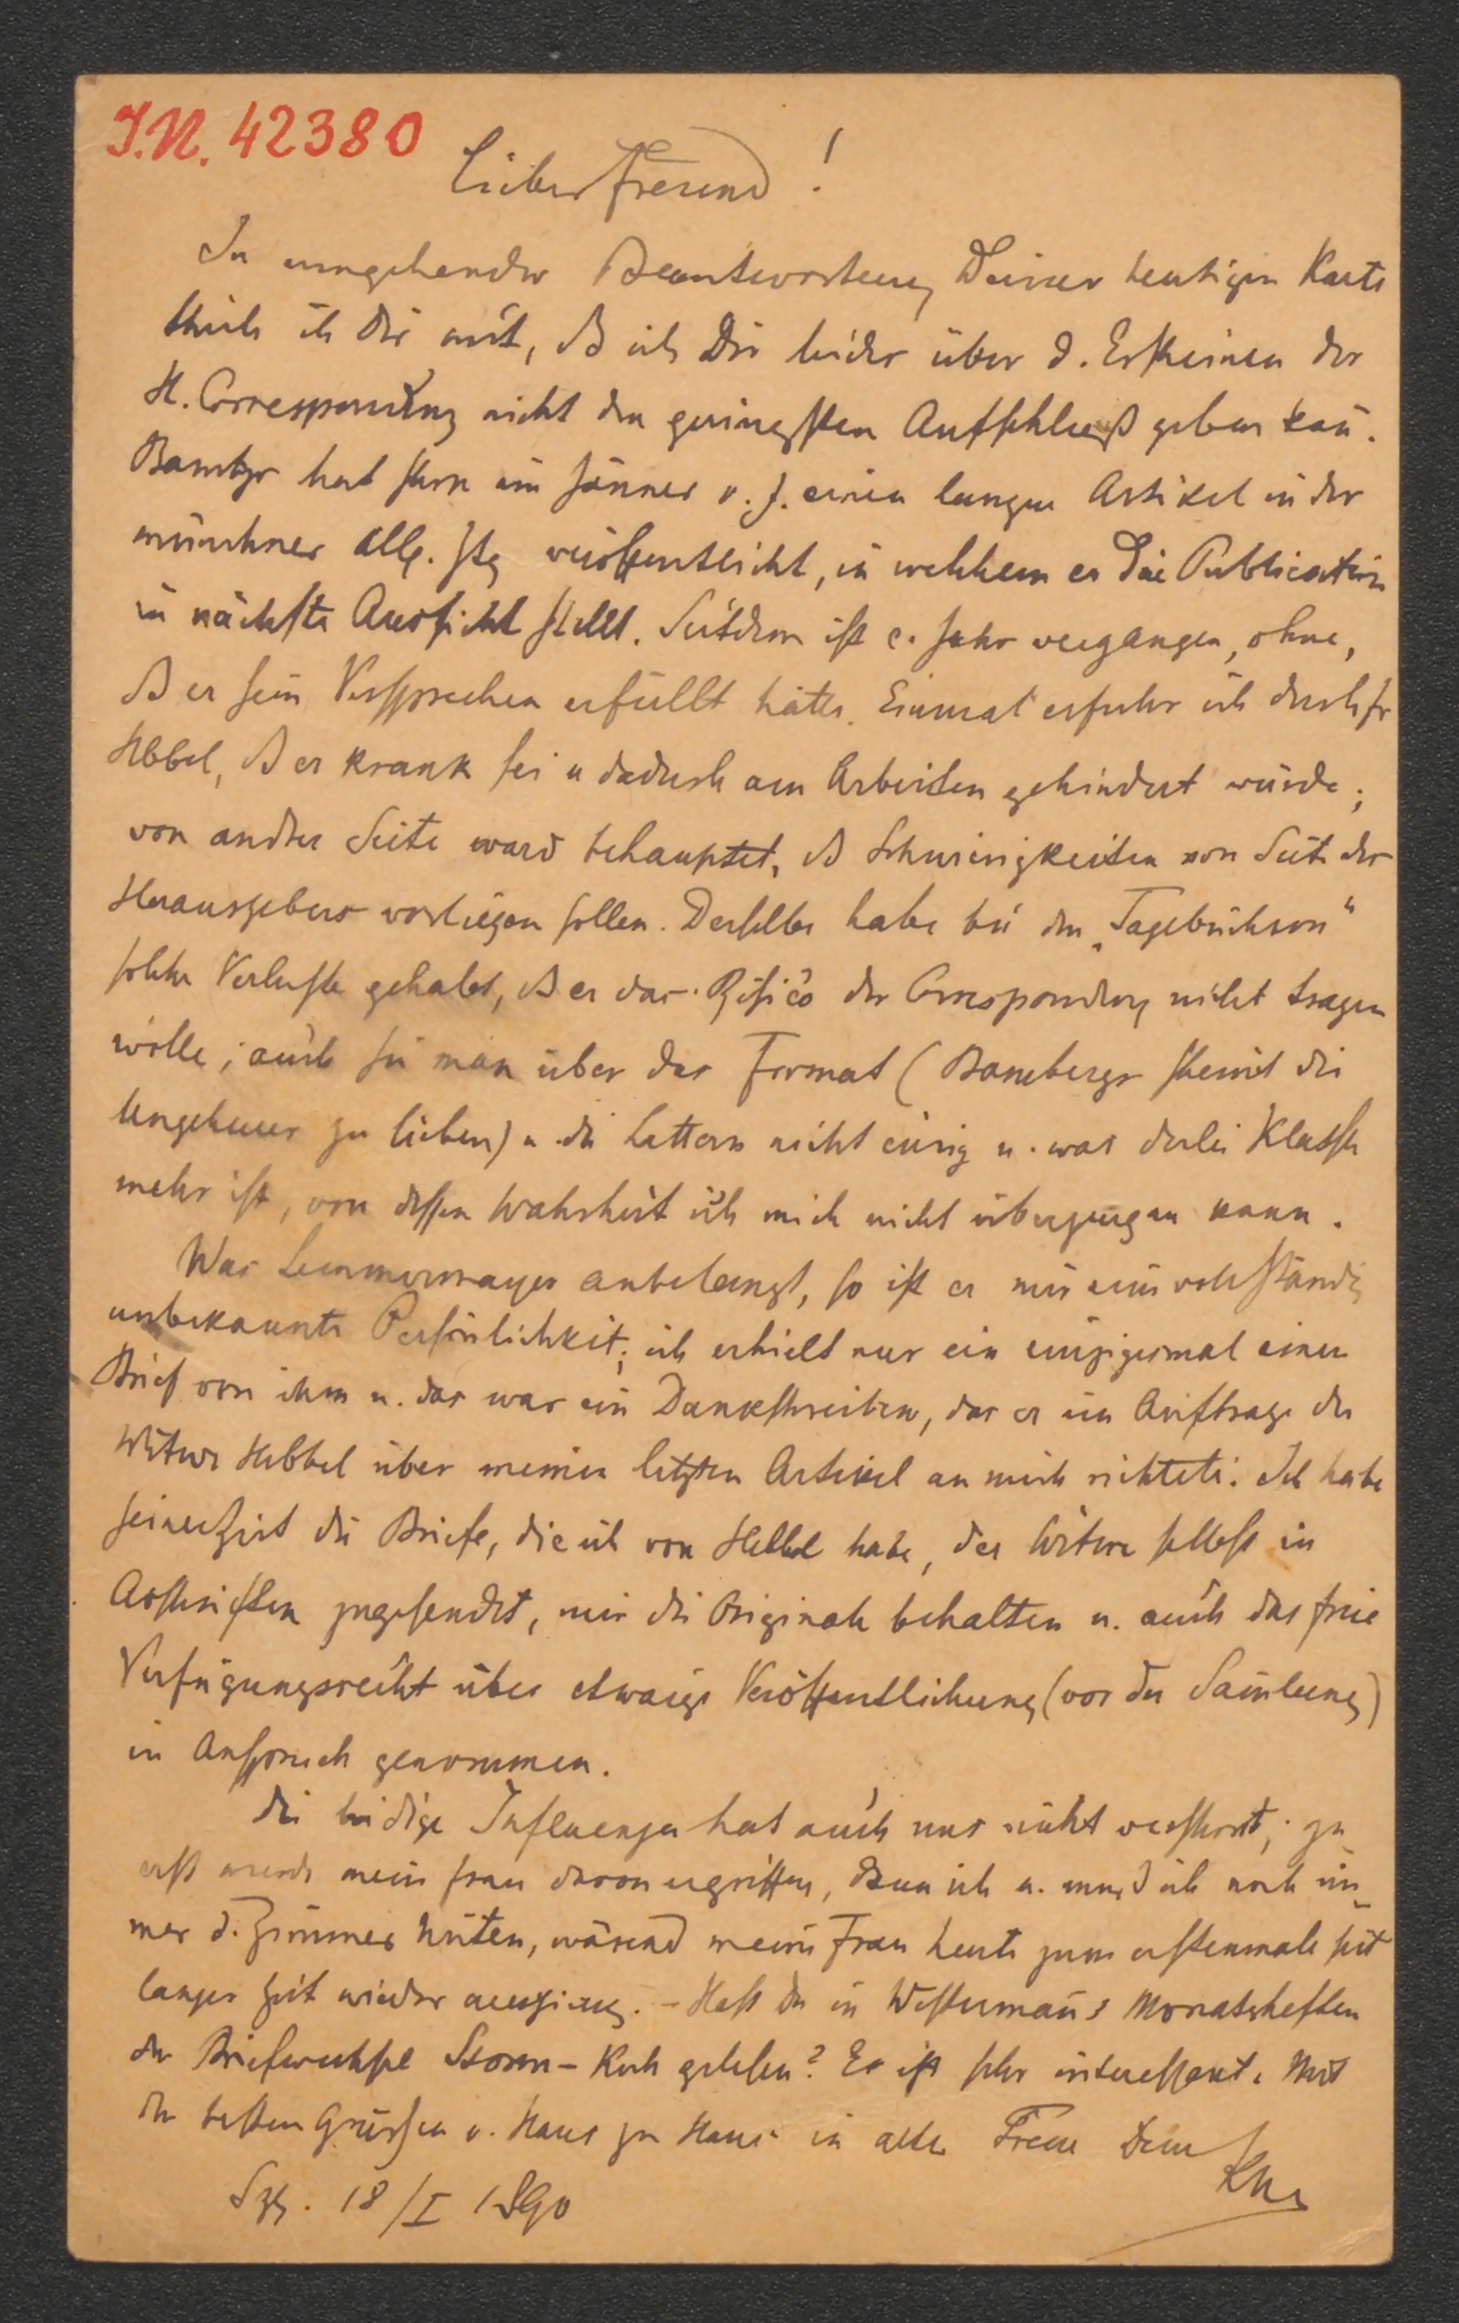 I.N. 42380
Lieber Freund!
In umgehender Beantwortung Deiner heutigen Karte
theile ich Dir mit, dß ich Dir leider über d. Erscheinen der
H. Correspondenz nicht den geringsten Aufschluß geben kañ.
Bambgr hat schon im Jänner v. J. einen langen Artikel in der
münchner Allg. Ztg veröffentlicht, in welchem er die Publication
in nächste Aussicht stellt. Seitdem ist e. Jahr vergangen, ohne,
dß er sein Versprechen erfüllt hätte. Einmal erfuhr ich durch Fr
Hbbel, dß er krank sei u dadurch am Arbeiten gehindert würde;
von andrer Seite ward behauptet, dß Schwierigkeiten von Seite des
Herausgebers vorliegen sollen. Derselbe habe bei den „Tagebüchern“
solche Verluste gehabt, dß er das Risico der Correspondenz nicht tragen
wolle; auch sei man über das Format (Bamberger scheint die
Ungeheuer zu lieben) u. die Lettern nicht einig u. was derlei Klatsch
mehr ist, von dessen Wahrheit ich mich nicht überzeugen kann.
Was Lemmermayer anbelangt, so ist er mir eine vollständig
unbekannte Persönlichkeit; ich erhielt nur ein einzigesmal einen
Brief von ihm u. das war ein Dankschreiben, das er im Auftrage der
Witwe Hebbel über meinen letzten Artikel an mich richtete. Ich habe
seinerzeit die Briefe, die ich von Hebbel habe, der Witwe selbst in
Abschriften zugesendet, mir die Originale behalten u. auch das freie
Verfügungsrecht über etwaige Veröffentlichung (vor der Sam̃lung)
in Anspruch genommen.
Die leidige Influenza hat auch uns nicht verschont; zu
erst wurde meine Frau davon ergriffen, dann ich u. muß ich noch im
mer d. Zimmer hüten, wärend meine Frau heute zum erstenmale seit
langer Zeit wieder ausging. – Hast Du in Westermañs Monatsheften
den Briefwechsel Storm – Kuh gelesen? Er ist sehr interessant. Mit
den besten Grüßen v. Haus zu Haus in alter Treue Dein
Szbg. 18/I 1890